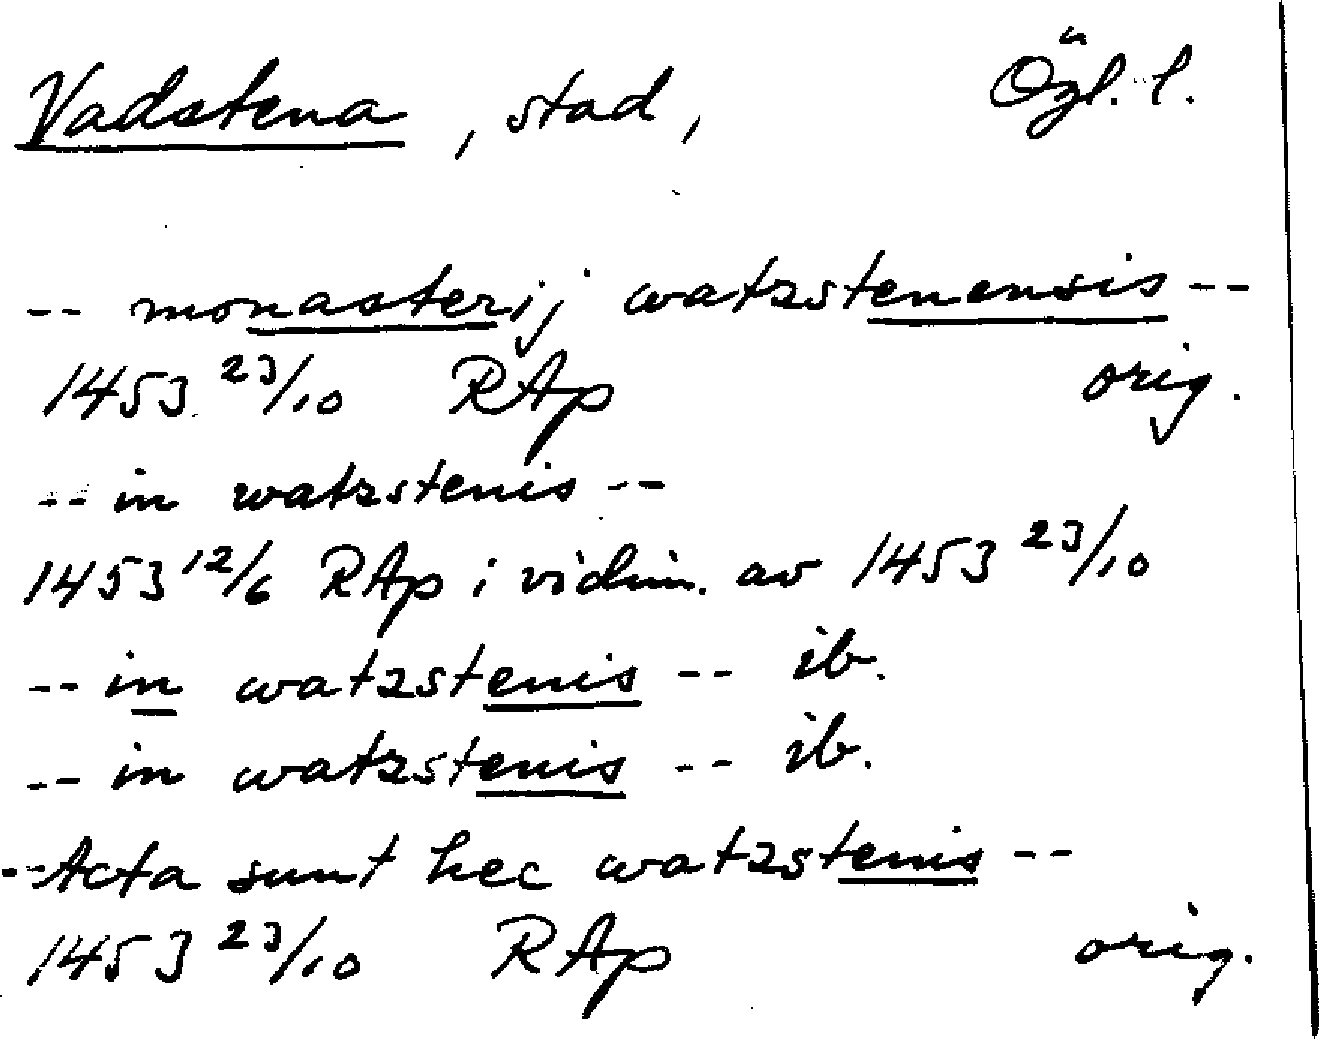 Vadstena, stad, Ögl. l.
-- monasterij watzstenensis --
1453 23/10 RAp orig.
-- in watzstenis --
1453 12/6 RAp i vidim. av 1453 23/10
-- in watzstenis -- ib.
-- in watzstenis -- ib.
-- Acta sunt hec watzstenis --
1453 23/10 RAp orig.